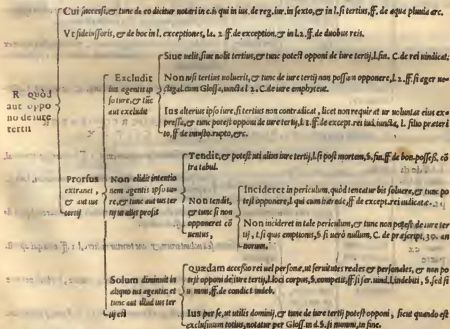 Cui successi, & tunc de eo dicitur notari in c. is qui in ius. de reg. iur. in sexto, & in l. si tertius, ff. de aqua pluuia arc.
Vt fideiussoris, & de hoc in l. exceptiones, la. 2. ff. de exception. & in l. 2. ff. de duobus reis.
R quòd
aut oppo
no de iure
tertii
Prorsus
extranei,
& aut ius
tertij
Excludit
ius agentis ip
so iure, & tūc
aut excludit
Siue velit, siue nolit tertius, & tunc potest opponi de iure tertij, l. fin. C. de rei uindicat.
Non nisi tertius uoluerit, & tunc de iure tertij non possum opponere, l. 2. ff. si ager ue-
ctigal. cum Glossa, iuncta l. 2. C. de iure emphyteut.
Ius alterius ipso iure, si tertius non contradicat, licet non requiratur uoluntas eius ex-
pressa, & tunc potest opponi de iure tertij, l. 2. ff. de except. rei iud. iuncta, l. filio præteri
to, ff. de iniusto rupto, &c.
Non elidit intentio
nem agentis ipso iu
re, & tunc aut ius ter
tij ut alijs prosit
Tendit, & potest uti alius iure tertij, l. si post mortem, §. fin. ff. de bon. possess. cō
tra tabul.
Non tendit,
& tunc si non
opponeret cō
uentus,
Incideret in periculum, quòd teneatur bis soluere, & tunc po
test opponere, l. qui cum hærede, ff. de except. rei iudicatæ.
Non incideret in tale periculum, & tunc non potest de iure ter
tij, l. si quis emptionis, §. si uerò nullum, C. de præscript. 30. an
norum.
Solum diminuit in
aliquo ius agentis: et
tunc aut illud ius ter
tij est
Quædam accessio rei uel personæ, ut seruitutes reales & personales, & non po
test opponi de iure tertij, l. loci corpus, §. competit, ff. si ser. uind. l. indebiti, §. sed si
ff. de condict. indeb.
Ius per se, ut utilis dominij, & tunc de iure tertij potest opponi, sicut quando est
exclusiuum totius, notatur per Gloss. in d. §. si nummi, in fine.